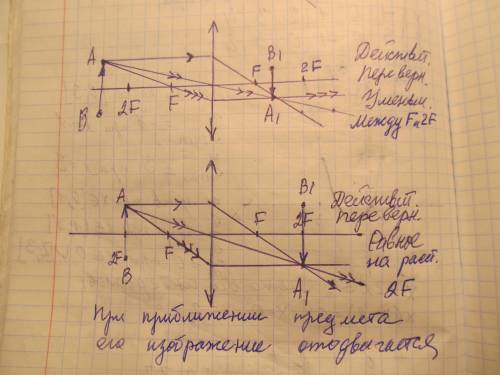 A
B₁
Действит.
F
2F
Переверн.
2F
F
Уменьш.
B
A₁
между F и 2F
A
B₁
Действит.
2F
переверн.
2F
F
F
Равное
B
на расст.
A₁
2F
При приближении предмета
его изображение отодвигается